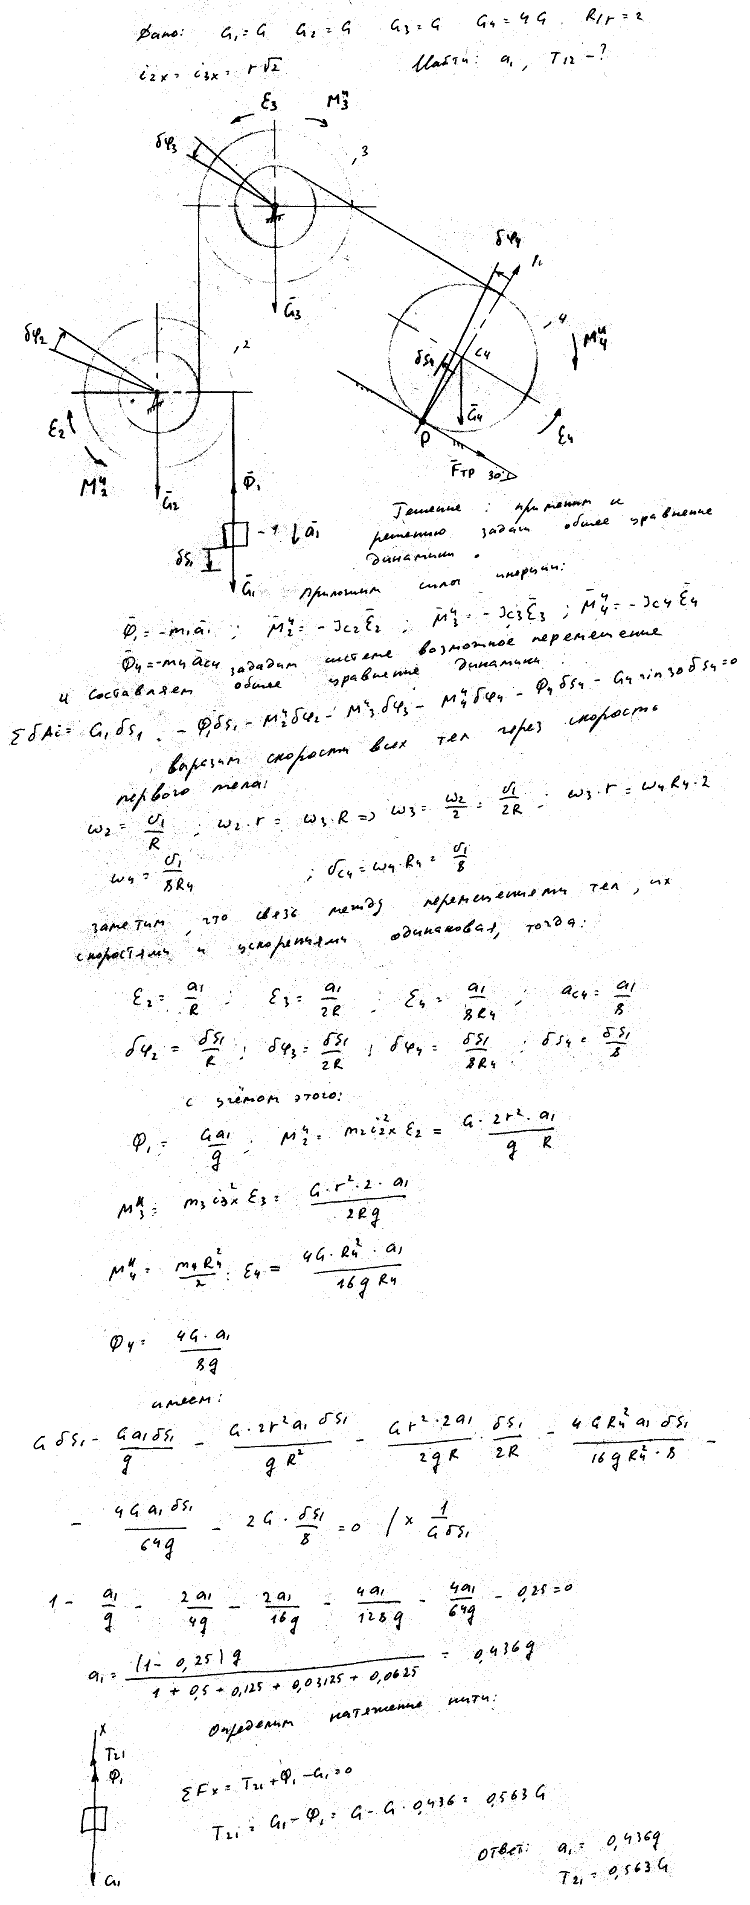 Дано: G₁=G G₂=G G₃=G G₄=4G R/r=2
i₂ₓ=i₃ₓ=r√2 Найти: a₁, T₁₂-?
ε₃ M₃ᶶ
δφ₃
3
δφ₄
n
Ḡ₃
4
δφ₂
2
M₄ᶶ
δS₄
C₄
Ḡ₄
ε₂
P
ε₄
F̄тр 30°
M₂ᶶ
Ḡ₂
Φ̄₁
1 ā₁
δS₁
Ḡ₁
Решение: применим к
решению задачи общее уравнение
динамики.
Приложим силы инерции:
Φ̄₁=-m₁ā₁; M̄₂ᶶ=-Jc₂ε̄₂; M̄₃ᶶ=-Jc₃ε̄₃; M̄₄ᶶ=-Jc₄ε̄₄
Φ̄₄=-m₄āc₄ зададим системе возможное перемещение
и составляем общее уравнение динамики:
ΣδAi= G₁δS₁ - Φ₁δS₁ - M₂ᶶδφ₂ - M₃ᶶδφ₃ - M₄ᶶδφ₄ - Φ₄δS₄ - G₄sin30δS₄=0
выразим скорости всех тел через скорость
первого тела:
ω₂= υ₁/R; ω₂·r= ω₃·R => ω₃= ω₂/2 = υ₁/2R; ω₃·r=ω₄R₄·2
ω₄= υ₁/8R₄; υc₄=ω₄·R₄= υ₁/8
заметим, что связь между перемещениями тел, их
скоростями и ускорениями одинаковая, тогда:
ε₂= a₁/R; ε₃= a₁/2R; ε₄= a₁/8R₄; ac₄= a₁/8
δφ₂= δS₁/R; δφ₃= δS₁/2R; δφ₄= δS₁/8R₄; δS₄= δS₁/8
с учётом этого:
Φ₁= Ga₁/g; M₂ᶶ= m₂i₂ₓ²ε₂= G·2r²·a₁/g R
M₃ᶶ= m₃i₃ₓ²ε₃= G·r²·2·a₁/2Rg
M₄ᶶ= m₄R₄²/2·ε₄= 4G·R₄²·a₁/16gR₄
Φ₄= 4G·a₁/8g
имеем:
GδS₁- Ga₁δS₁/g - G·2r²a₁δS₁/gR² - Gr²·2a₁/2gR · δS₁/2R - 4GR₄²a₁δS₁/16gR₄²·8 -
- 4Ga₁δS₁/64g - 2G· δS₁/8 =0 /× 1/GδS₁
1- a₁/g - 2a₁/4g - 2a₁/16g - 4a₁/128g - 4a₁/64g - 0,25=0
a₁= (1-0,25)g/1+0,5+0,125+0,03125+0,0625 = 0,436g
Определим натяжение нити:
x
T₂₁
Φ₁
ΣFx=T₂₁+Φ₁-G₁=0
T₂₁=G₁-Φ₁=G-G·0,436=0,563G
G₁
Ответ: a₁=0,436g
T₂₁=0,563G